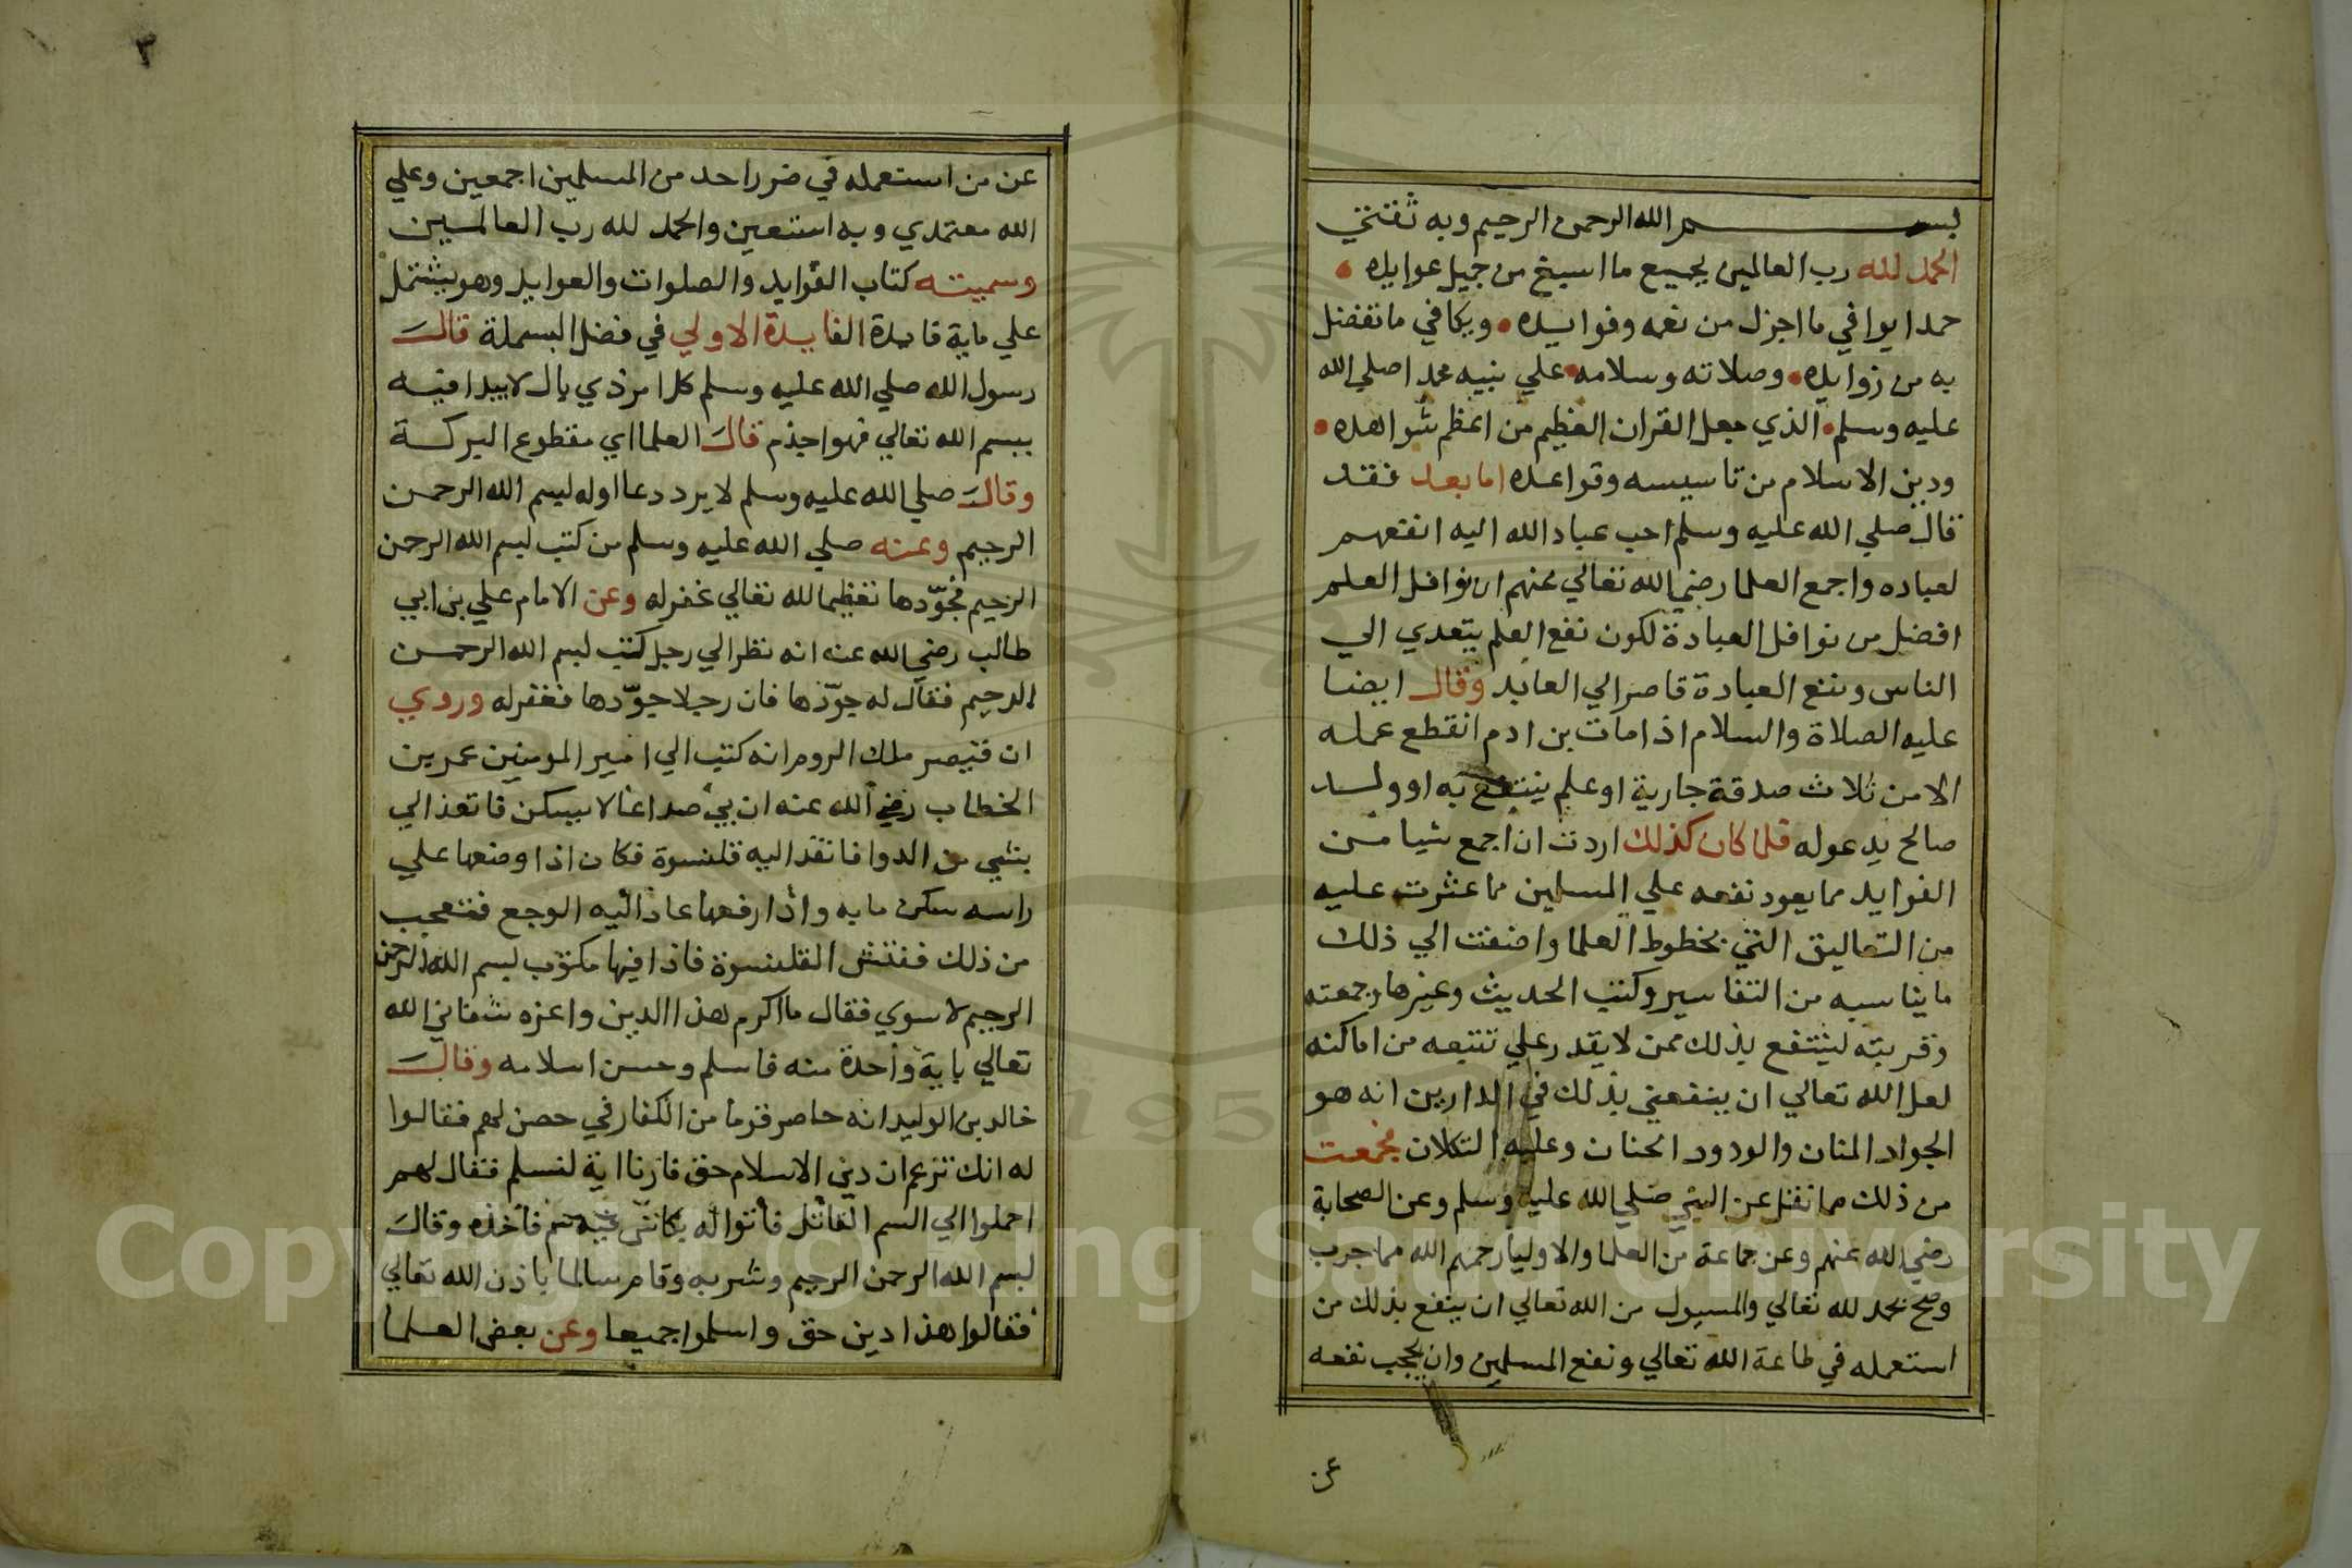 بسم الله الرحمن الرحيم وبه ثقتي
الحمد لله رب العالمين بجميع ما اسبغ من جميل عوايده
حمدا يوافي ما اجزل من نعمه وفوايده ويكافي ما تفضل
به من زوايده وصلاته وسلامه علي نبيه محمد اصلي الله
عليه وسلم الذي جعل القران العظيم من اعظم شواهده
ودين الاسلام من تاسيسه وقواعده اما بعد فقد
قال صلي الله عليه وسلم احب عباد الله اليه انفعهم
لعباده واجمع العلما رضي الله تعالي عنهم ان نوافل العلم
افضل من نوافل العبادة لكون نفع العلم يتعدي الي
الناس ونفع العبادة قاصر الي العابد وقال ايضا
عليه الصلاة والسلام اذا مات بن ادم انقطع عمله
الا من ثلاث صدقة جارية او علم ينتفع به او ولد
صالح يدعوله فلما كان كذلك اردت ان اجمع شيا من
الفوايد مما يعود نفعه علي المسلمين مما عثرت عليه
من التعاليق التي بخطوط العلما واضفت الي ذلك
ما يناسبه من التفاسير وكتب الحديث وغيرها وجمعته
وقربته لينتفع بذلك ممن لا يقدر علي تتبعه من اماكنه
لعل الله تعالي ان ينفعني بذلك في الدارين انه هو
الجواد المنان والودود الحنان وعليه التكلان فجمعت
من ذلك مما نقل عن النبي صلي الله عليه وسلم وعن الصحابة
رضي الله عنهم وعن جماعة من العلما والاوليا رحمهم الله مما جرب
وصح بحمد لله تعالي والمسيول من الله تعالي ان ينفع بذلك من
استعمله في طاعة الله تعالي ونفع المسلمين وان يحجب نفعه
عن
٢
عن من استعمله في ضرر احد من المسلمين اجمعين وعلي
الله معتمدي وبه استعين والحمد لله رب العالمين
وسميته كتاب الفوايد والصلوات والعوايد وهو يشتمل
علي ماية فايدة الفايدة الاولي في فضل البسملة قال
رسول الله صلي الله عليه وسلم كل امر ذي بال لا يبدا فيه
ببسم الله تعالي فهو اجذم قال العلما اي مقطوع البركة
وقال صلي الله عليه وسلم لا يرد دعا اوله بسم الله الرحمن
الرحيم وعنه صلي الله عليه وسلم من كتب بسم الله الرحمن
الرحيم فجوّدها تعظيما لله تعالي غفر له وعن الامام علي بن ابي
طالب رضي الله عنه انه نظر الي رجل كتب بسم الله الرحمن
الرحيم فقال له جوّدها فان رجلا جوّدها فغفر له وروي
ان قيصر ملك الروم انه كتب الي امير المومنين عمر بن
الخطاب رضي الله عنه ان بي صداعا لا يسكن فانفذ الي
بشي من الدوا فانفذ اليه قلنسوة فكان اذا وضعها علي
راسه سكن ما به واذا رفعها عاد اليه الوجع فتعجب
من ذلك ففتش القلنسوة فاذا فيها مكتوب بسم الله الرحمن
الرحيم لا سوي فقال ما اكرم هذا الدين واعزه شفاني الله
تعالي باية واحدة منه فاسلم وحسن اسلامه وقال
خالد بن الوليد انه حاصر قوما من الكفار في حصن لهم فقالوا
له انك تزعم ان دين الاسلام حق فارنا اية لنسلم فقال لهم
احملوا الي السم القاتل فأتوا له بكاس فيه سم فأخذه وقال
بسم الله الرحمن الرحيم وشربه وقام سالما باذن الله تعالي
فقالوا هذا دين حق واسلموا جميعا وعن بعض العلما
Copyright © King Saud University
1957